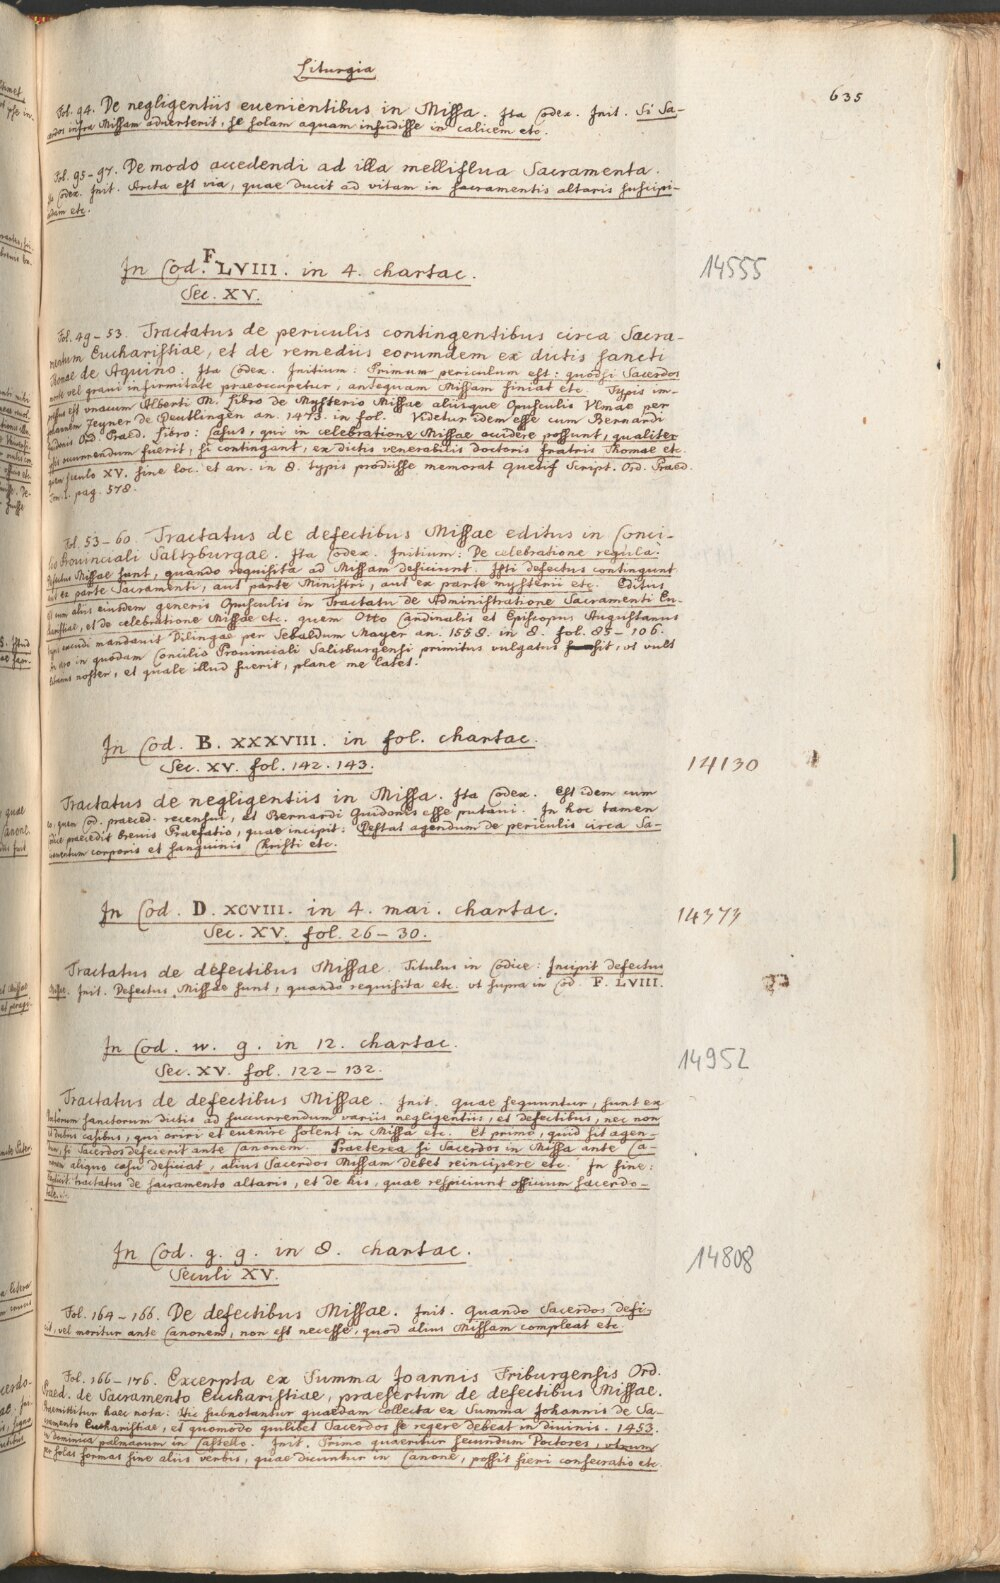 Liturgia
635
Fol. 94. De negligentiis euenientibus in Missa. Ita Codex. Init. Si Sa-
cerdos infra Missam aduerterit, se solam aquam infudisse in calicem etc.
Fol. 95-97. De modo accedendi ad illa melliflua Sacramenta.
Ita Codex. Init. Arcta est via, quae ducit ad vitam in sacramentis altaris suscipi-
endam etc.
In Cod. F. LVIII. in 4. chartac.
14555
Sec. XV.
Fol. 49-53. Tractatus de periculis contingentibus circa Sacra-
mentum Eucharistiae, et de remediis eorumdem ex dictis sancti
Thomae de Aquino. Ita Codex. Initium: Primum periculum est: quodsi Sacerdos
morte vel graui infirmitate praeoccupetur, antequam Missam finiat etc. Typis im-
pressus est vnacum Alberti M. Libro de Mysterio Missae aliisque Opusculis Vlmae per
Joannem Zeyner de Reutlingen an. 1473. in fol. Videtur idem esse cum Bernardi
Guidonis Ord. Praed. libro: Casus, qui in celebratione Missae accidere possunt, qualiter
ipsis succurrendum fuerit, si contingant, ex dictis venerabilis doctoris fratris Thomae etc.
quem seculo XV. sine loc. et an. in 8. typis prodiisse memorat Quetif Script. Ord. Praed.
Tom. I. pag. 578.
Fol. 53-60. Tractatus de defectibus Missae editus in Conci-
lio Prouinciali Saltzburgae. Ita Codex. Initium: De celebratione regula:
Defectus Missae sunt, quando requisita ad Missam deficiunt. Isti defectus contingunt
aut ex parte Sacramenti, aut parte Ministri, aut ex parte mysterii etc. Editus
est cum aliis eiusdem generis Opusculis in Tractatu de Administratione Sacramenti Eu-
charistiae, et de celebratione Missae etc. quem Otto Cardinalis et Episcopus Augustanus
typis excudi mandauit Dilingae per Sebaldum Mayer an. 1558. in 8. fol. 85-106.
An vero in quodam Concilio Prouinciali Salisburgensi primitus vulgatus sit, vt vult
titulus noster, et quale illud fuerit, plane me latet.
In Cod. B. XXXVIII. in fol. chartac.
14130
Sec. XV. fol. 142. 143.
Tractatus de negligentiis in Missa. Ita Codex. Est idem cum
eo, quem Cod. praeced. recensui, et Bernardi Guidonis esse putaui. In hoc tamen
Codice praecedit breuis Praefatio, quae incipit: Restat agendum de periculis circa Sa-
cramentum corporis et sanguinis Christi etc.
In Cod. D. XCVIII. in 4. mai. chartac.
14373
Sec. XV. fol. 26-30.
Tractatus de defectibus Missae. Titulus in Codice: Incipit defectus
Missae. Init. Defectus Missae sunt, quando requisita etc. vt supra in Cod. F. LVIII.
In Cod. w. g. in 12. chartac.
14952
Sec. XV. fol. 122-132.
Tractatus de defectibus Missae. Init. Quae sequuntur, sunt ex
Doctorum sanctorum dictis ad succurrendum variis negligentiis, et defectibus, nec non
et dubiis casibus, qui oriri et euenire solent in Missa etc. Et primo, quid sit agen-
dum, si Sacerdos defecerit ante Canonem. Praeterea si Sacerdos in Missa ante Ca-
nonem aliquo casu deficiat, alius Sacerdos Missam debet reincipere etc. In fine:
Explicit tractatus de sacramento altaris, et de his, quae respiciunt officium sacerdo-
tale.
In Cod. g. g. in 8. chartac.
14808
Seculi XV.
Fol. 164-166. De defectibus Missae. Init. Quando Sacerdos defi-
cit, vel moritur ante Canonem, non est necesse, quod alius Missam compleat etc.
Fol. 166-176. Excerpta ex Summa Joannis Friburgensis Ord.
Praed. de Sacramento Eucharistiae, praesertim de defectibus Missae.
Praemittitur haec nota: Hic subnotantur quaedam collecta ex Summa Johannis de Sa-
cramento Eucharistiae, et quomodo quilibet Sacerdos se regere debeat in diuinis. 1453.
in dominica palmarum in Castello. Init. Primo quaeritur secundum Doctores, vtrum
per solas formas sine aliis verbis, quae dicuntur in Canone, possit fieri consecratio etc.